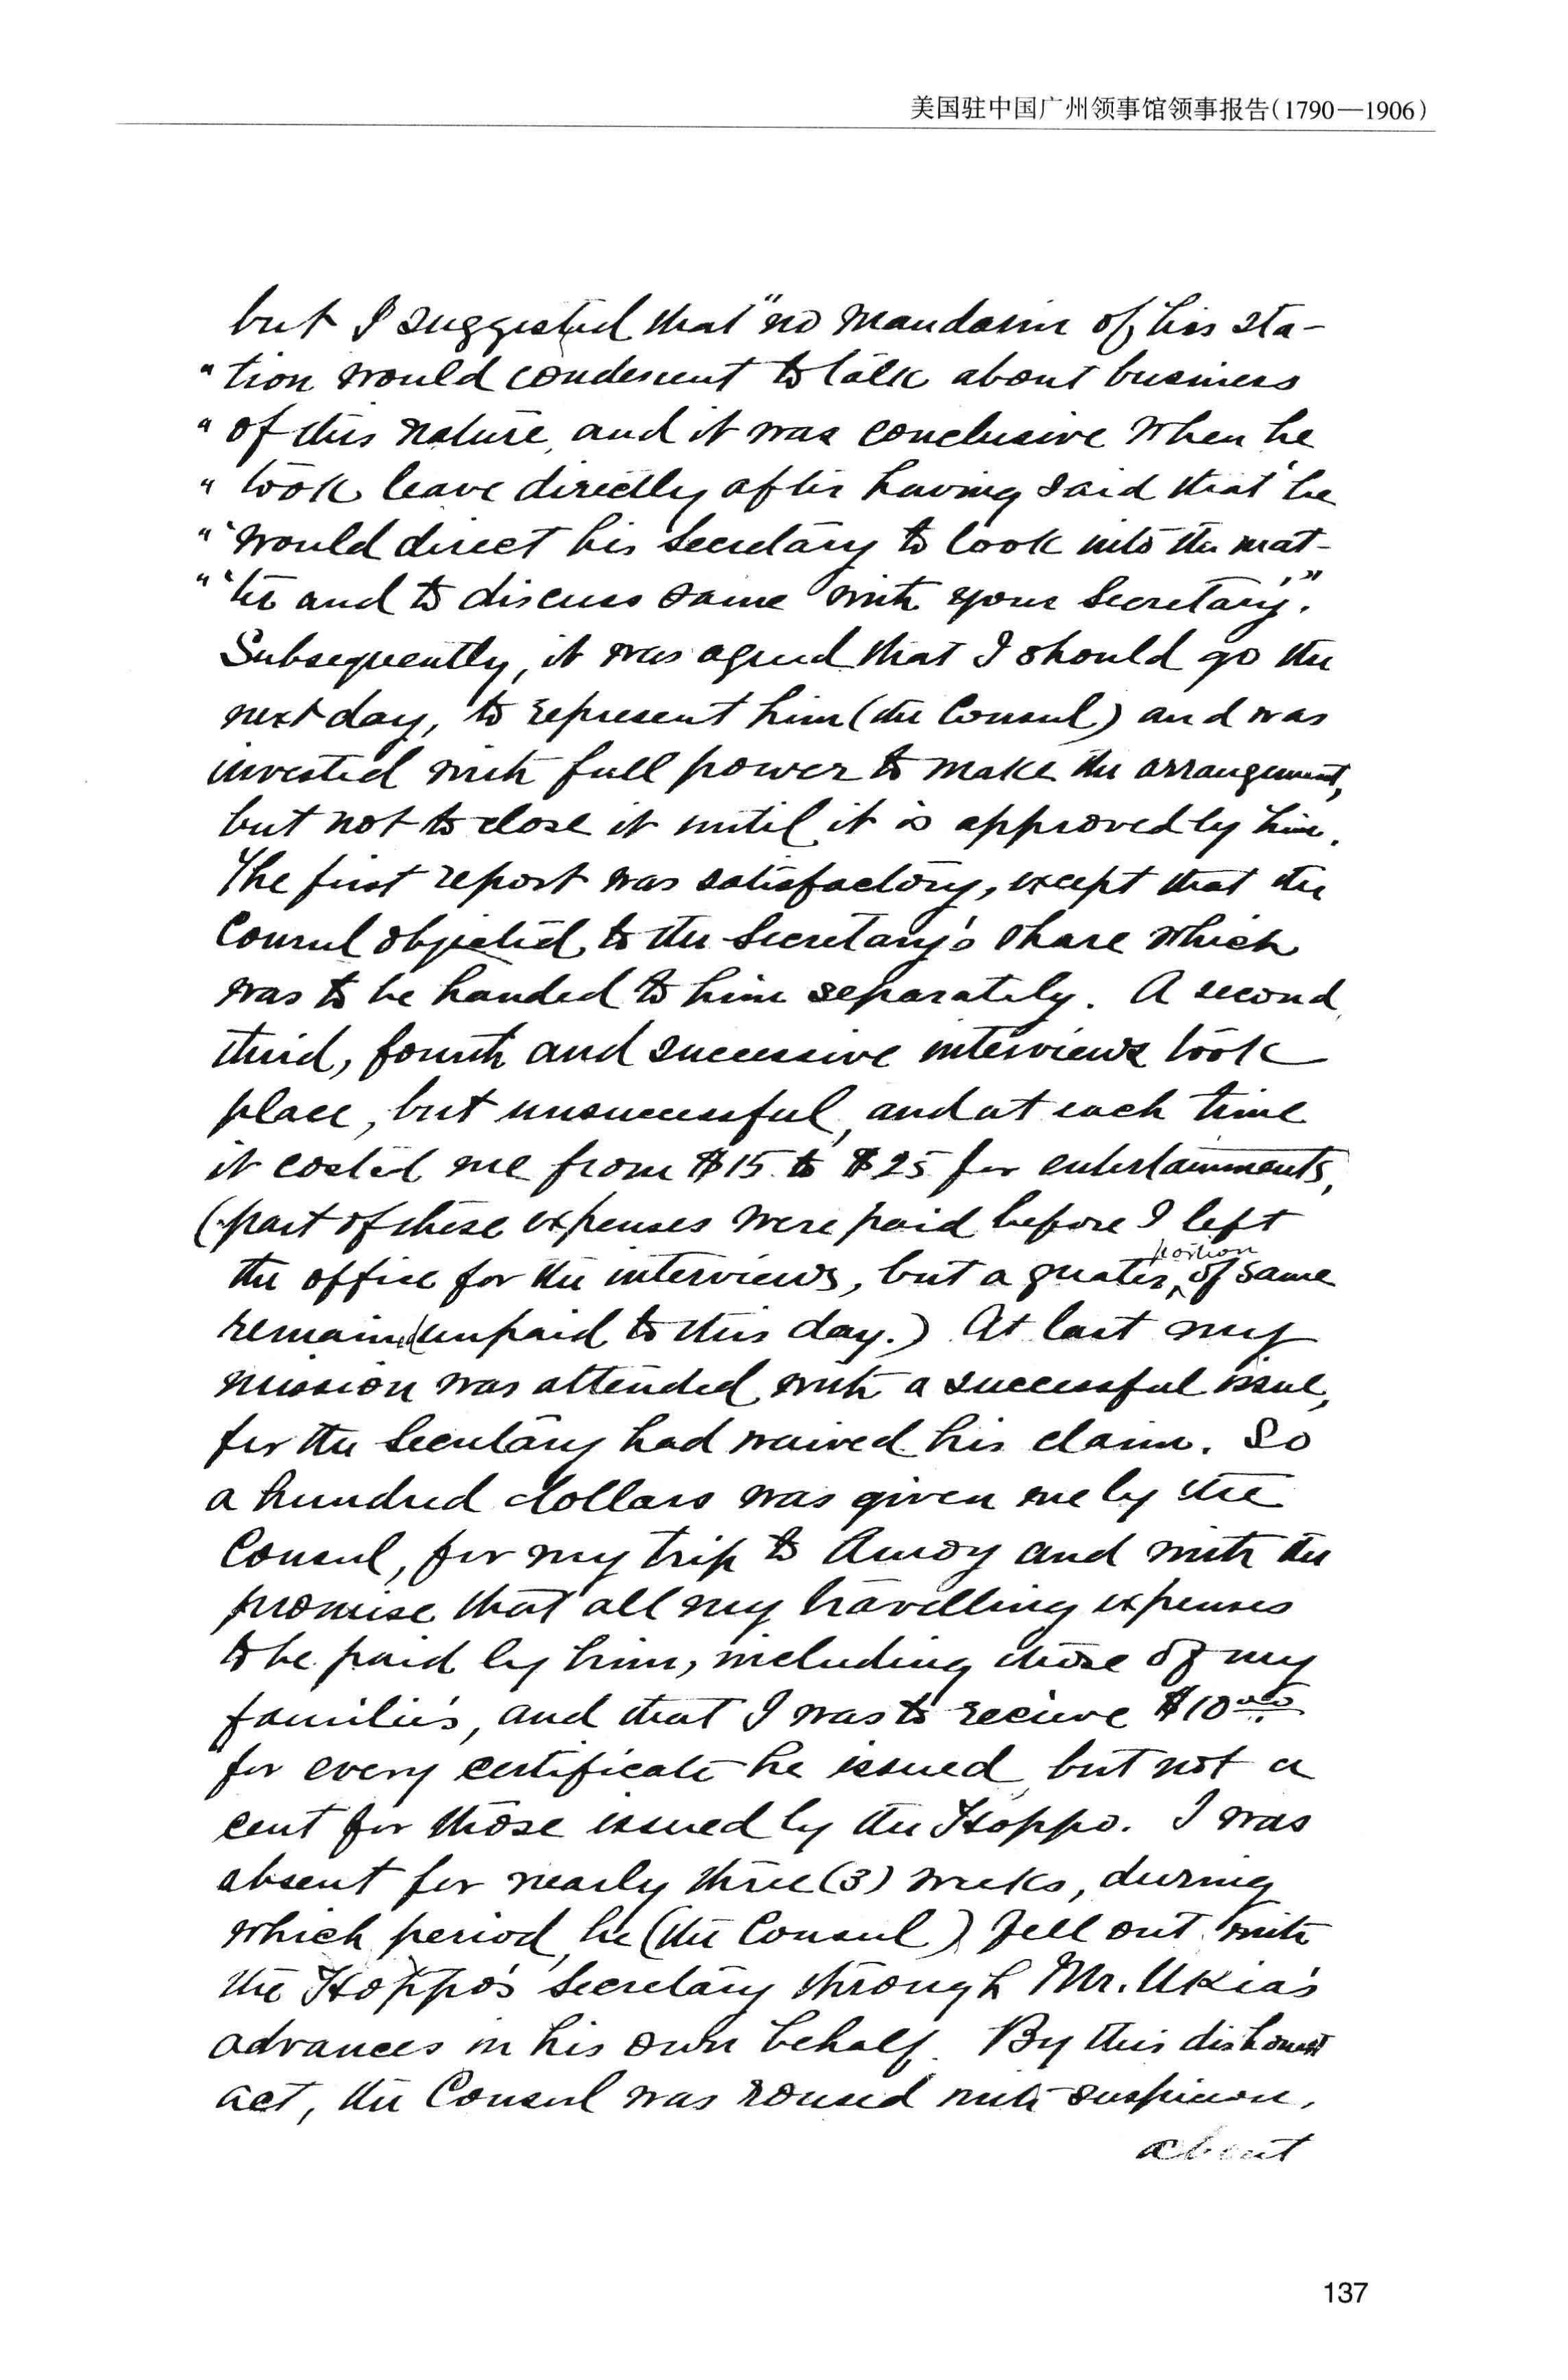 美国驻中国广州领事馆领事报告(1790—1906)
but I suggested that "no Mandarin of his sta-
" tion would condescent to talk about business
" of this nature, and it was conclusive when he
" took leave directly after having said that 'he
" 'would direct his Secretary to look into the mat-
" 'ter and to discuss same with your Secretary'."
Subsequently, it was agreed that I should go the
next day, to represent him (the Consul) and was
invested with full power to make the arrangement,
but not to close it until it is approved by him.
The first report was satisfactory, except that the
Consul objected to the Secretary's share which
was to be handed to him separately. A second,
third, fourth and successive interviews took
place, but unsuccessful, and at each time
it costed me from $15 to $25 for entertainments,
(part of these expenses were paid before I left
the office for the interviews, but a greater portion of same
remain unpaid to this day.) At last my
mission was attended with a successful issue,
for the Secretary had waived his claim. So
a hundred dollars was given me by the
Consul, for my trip to Amoy and with the
promise that all my travelling expenses
to be paid by him, including those of my
familie's, and that I was to recieve $10.00
for every certificate he issued, but not a
cent for those issued by the Hoppo. I was
absent for nearly three (3) weeks, during
which period, he (the Consul) fell out with
the Hoppo's Secretary through Mr. Ukia's
advances in his own behalf. By this dishonest
act, the Consul was roused with suspicion,
about
137